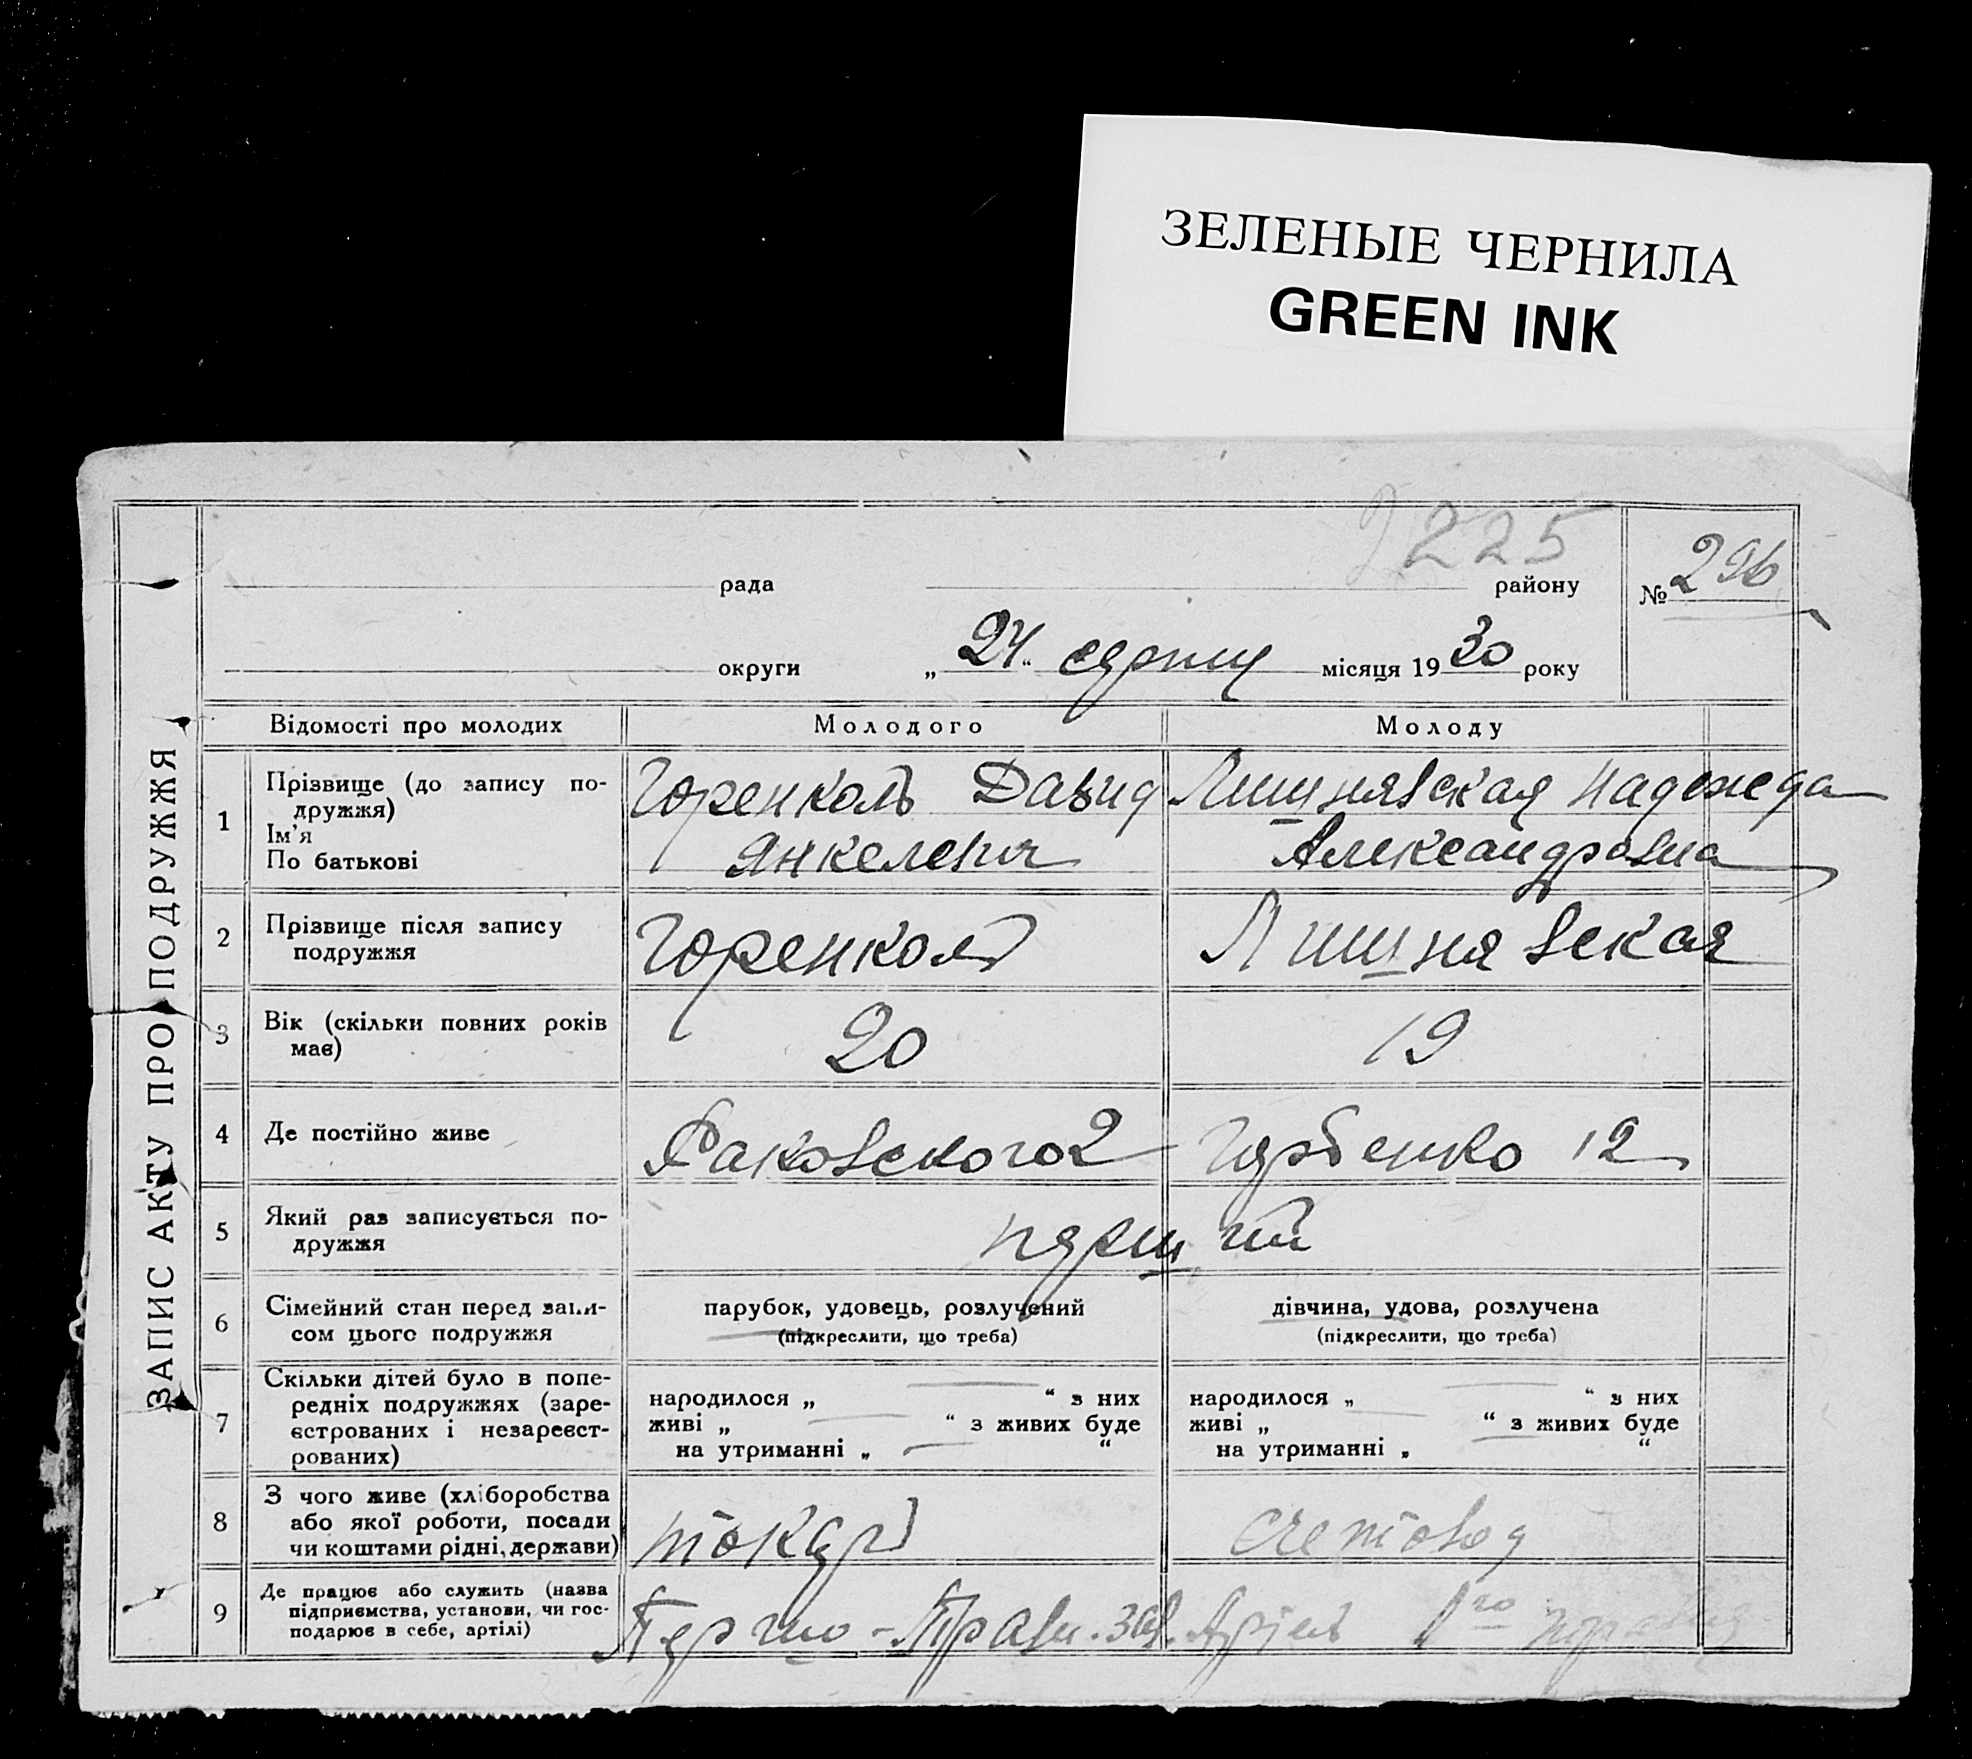 ЗЕЛЕНЫЕ ЧЕРНИЛА
GREEN INK
225
рада
району
№ 296
округи
„ 24 “ серпня місяця 1930 року
ЗАПИС АКТУ ПРО ПОДРУЖЖЯ
Відомості про молодих
Молодого
Молоду
1
Прізвище (до запису по-
дружжя)
Ім'я
По батькові
Горенколь Давид
Янкелевич
Лишнявская Надежда
Александровна
2
Прізвище після запису
подружжя
Горенколь
Лишнявская
3
Вік (скільки повних років
має)
20
19
4
Де постійно живе
Раковского 2
Гарбенко 12
5
Який раз записується по-
дружжя
перший
6
Сімейний стан перед запи-
сом цього подружжя
парубок, удовець, розлучений
(підкреслити, що треба)
дівчина, удова, розлучена
(підкреслити, що треба)
7
Скільки дітей було в попе-
редніх подружжях (заре-
єстрованих і незареєст-
рованих)
народилося „ “ з них
живі „ “ з живих буде
на утриманні „ “
народилося „ “ з них
живі „ “ з живих буде
на утриманні „ “
8
З чого живе (хліборобства
або якої роботи, посади
чи коштами рідні, держави)
токарь
счетовод
9
Де працює або служить (назва
підприємства, установи, чи гос-
подарює в себе, артілі)